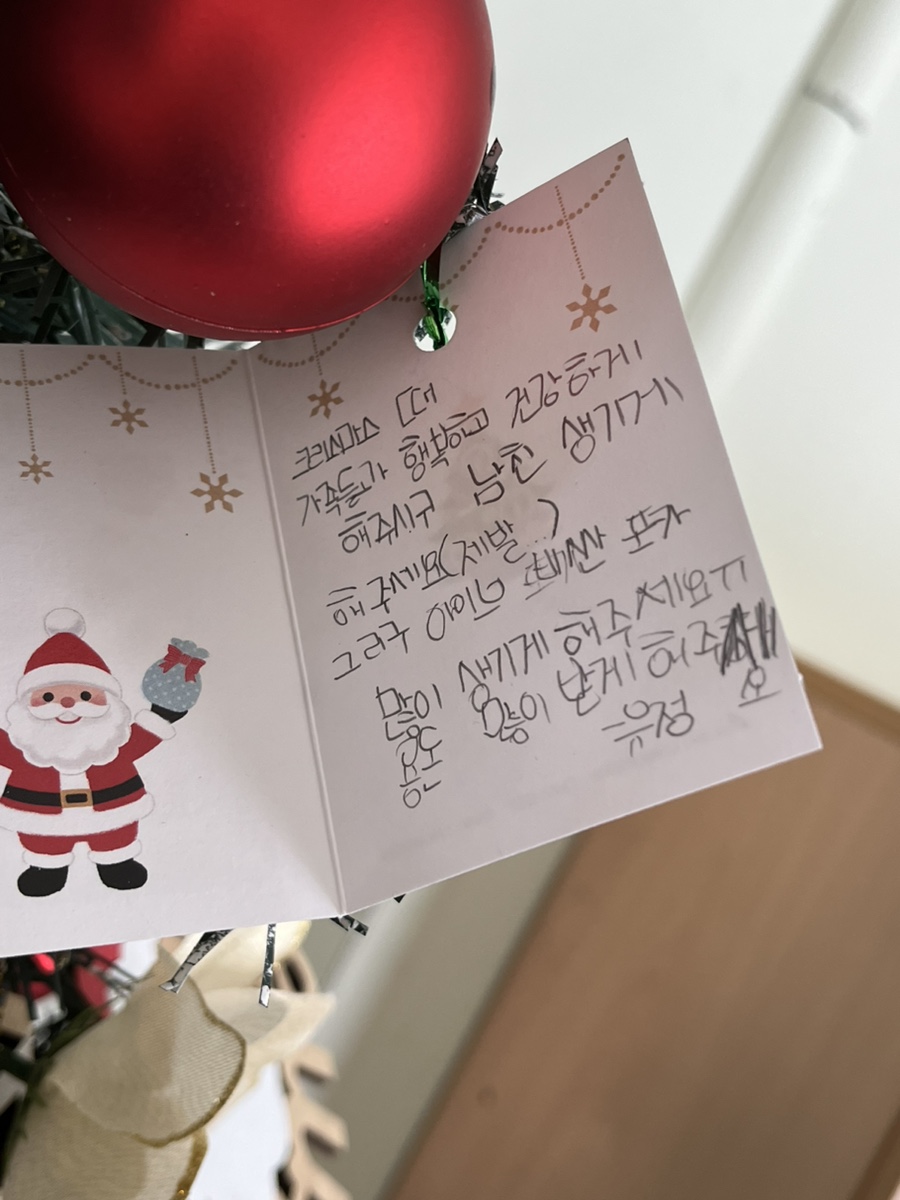 크리스마스 때
가족들과 행복하고 건강하게
해주시구 남친 생기게
해주세요(제발..)
그러구 아이브 포카
많이 생기게 해주세요ㅠㅠ
용돈 많이 받게 해주
요
유정